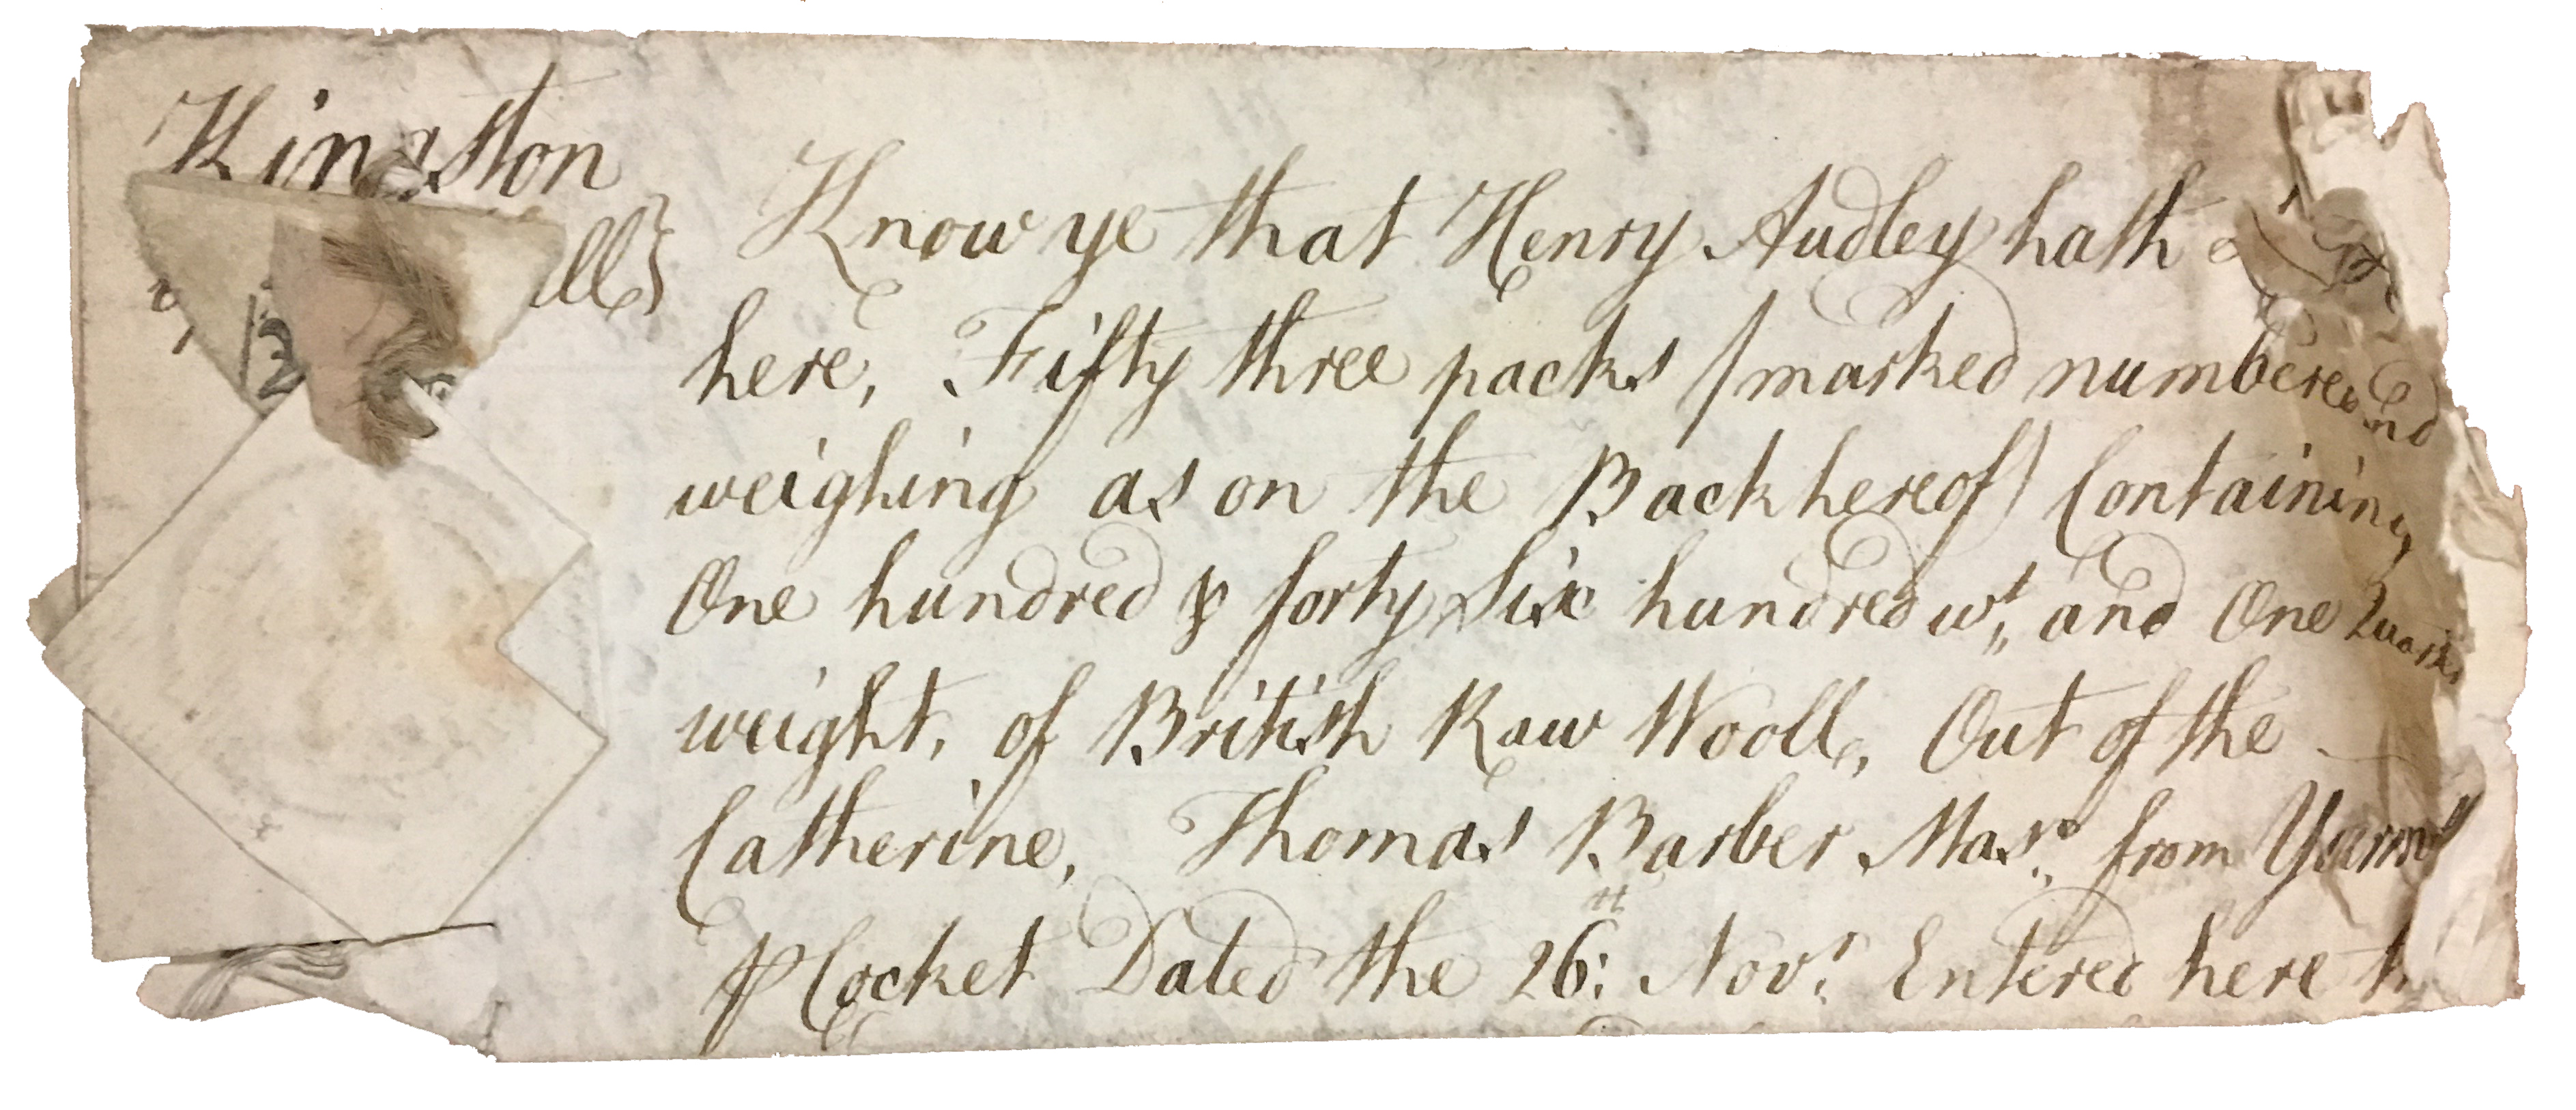 Kingston
ll
Know ye that Henry Audley hath
here, Fifty three packs / marked numbered and
weighing as on the Back hereof) Containing
One hundred & forty Six hundred wt, and One Quarter
weight, of British Raw Wooll, Out of the
Catherine, Thomas Barber Mast: from Yarmo
⅌ Cocket Dated the 26th: Novr: Entered here